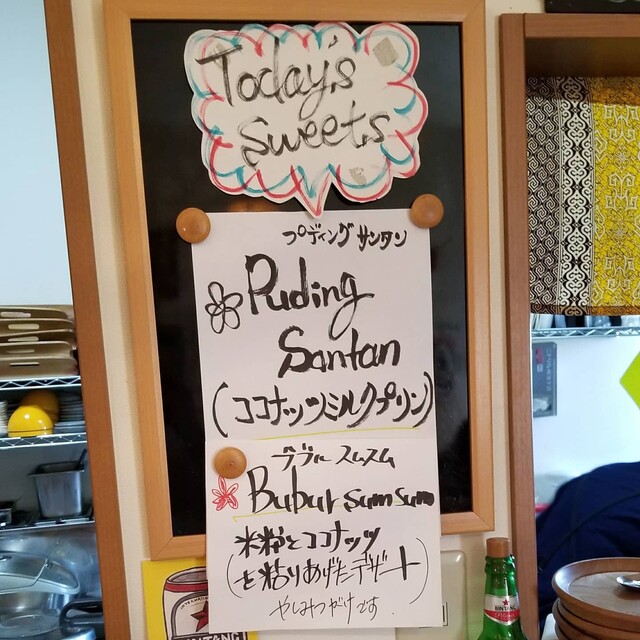 Today's
Sweets
プディングサンタン
Puding
Santan
(ココナッツミルクプリン)
ブブル スムスム
Bubur sumsum
米粉とココナッツ
(を粘りあげたデザート)
やしみつがけです.
BINTANG
BINTANG